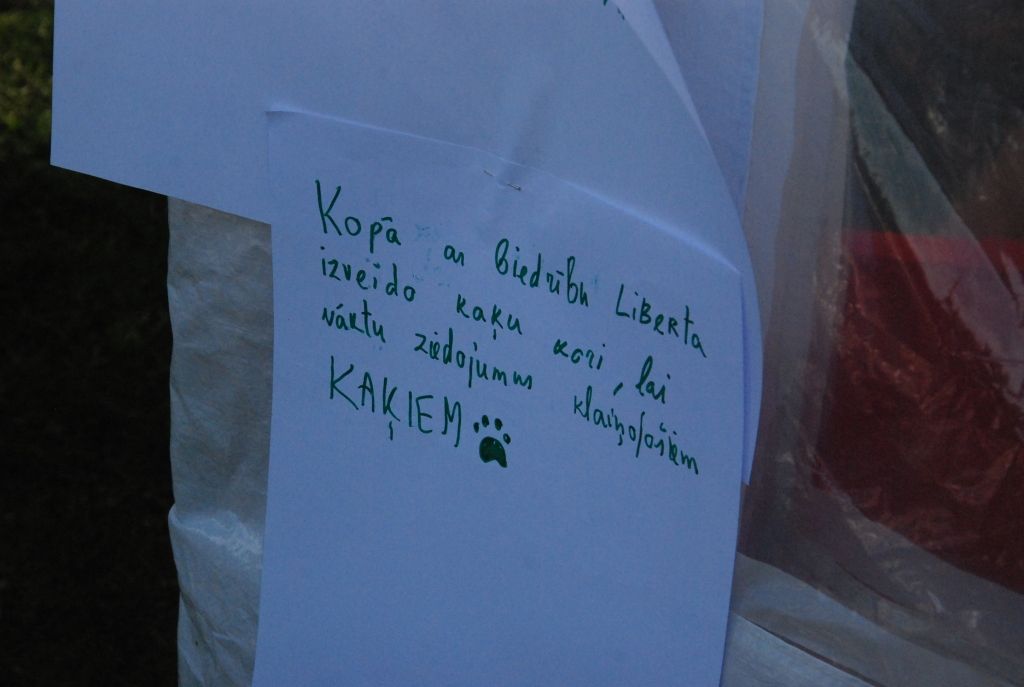 Kopā ar biedrību LiBERta
izveido kaķu kori, lai
vāktu ziedojumus klaiņojošiem
KAĶIEM